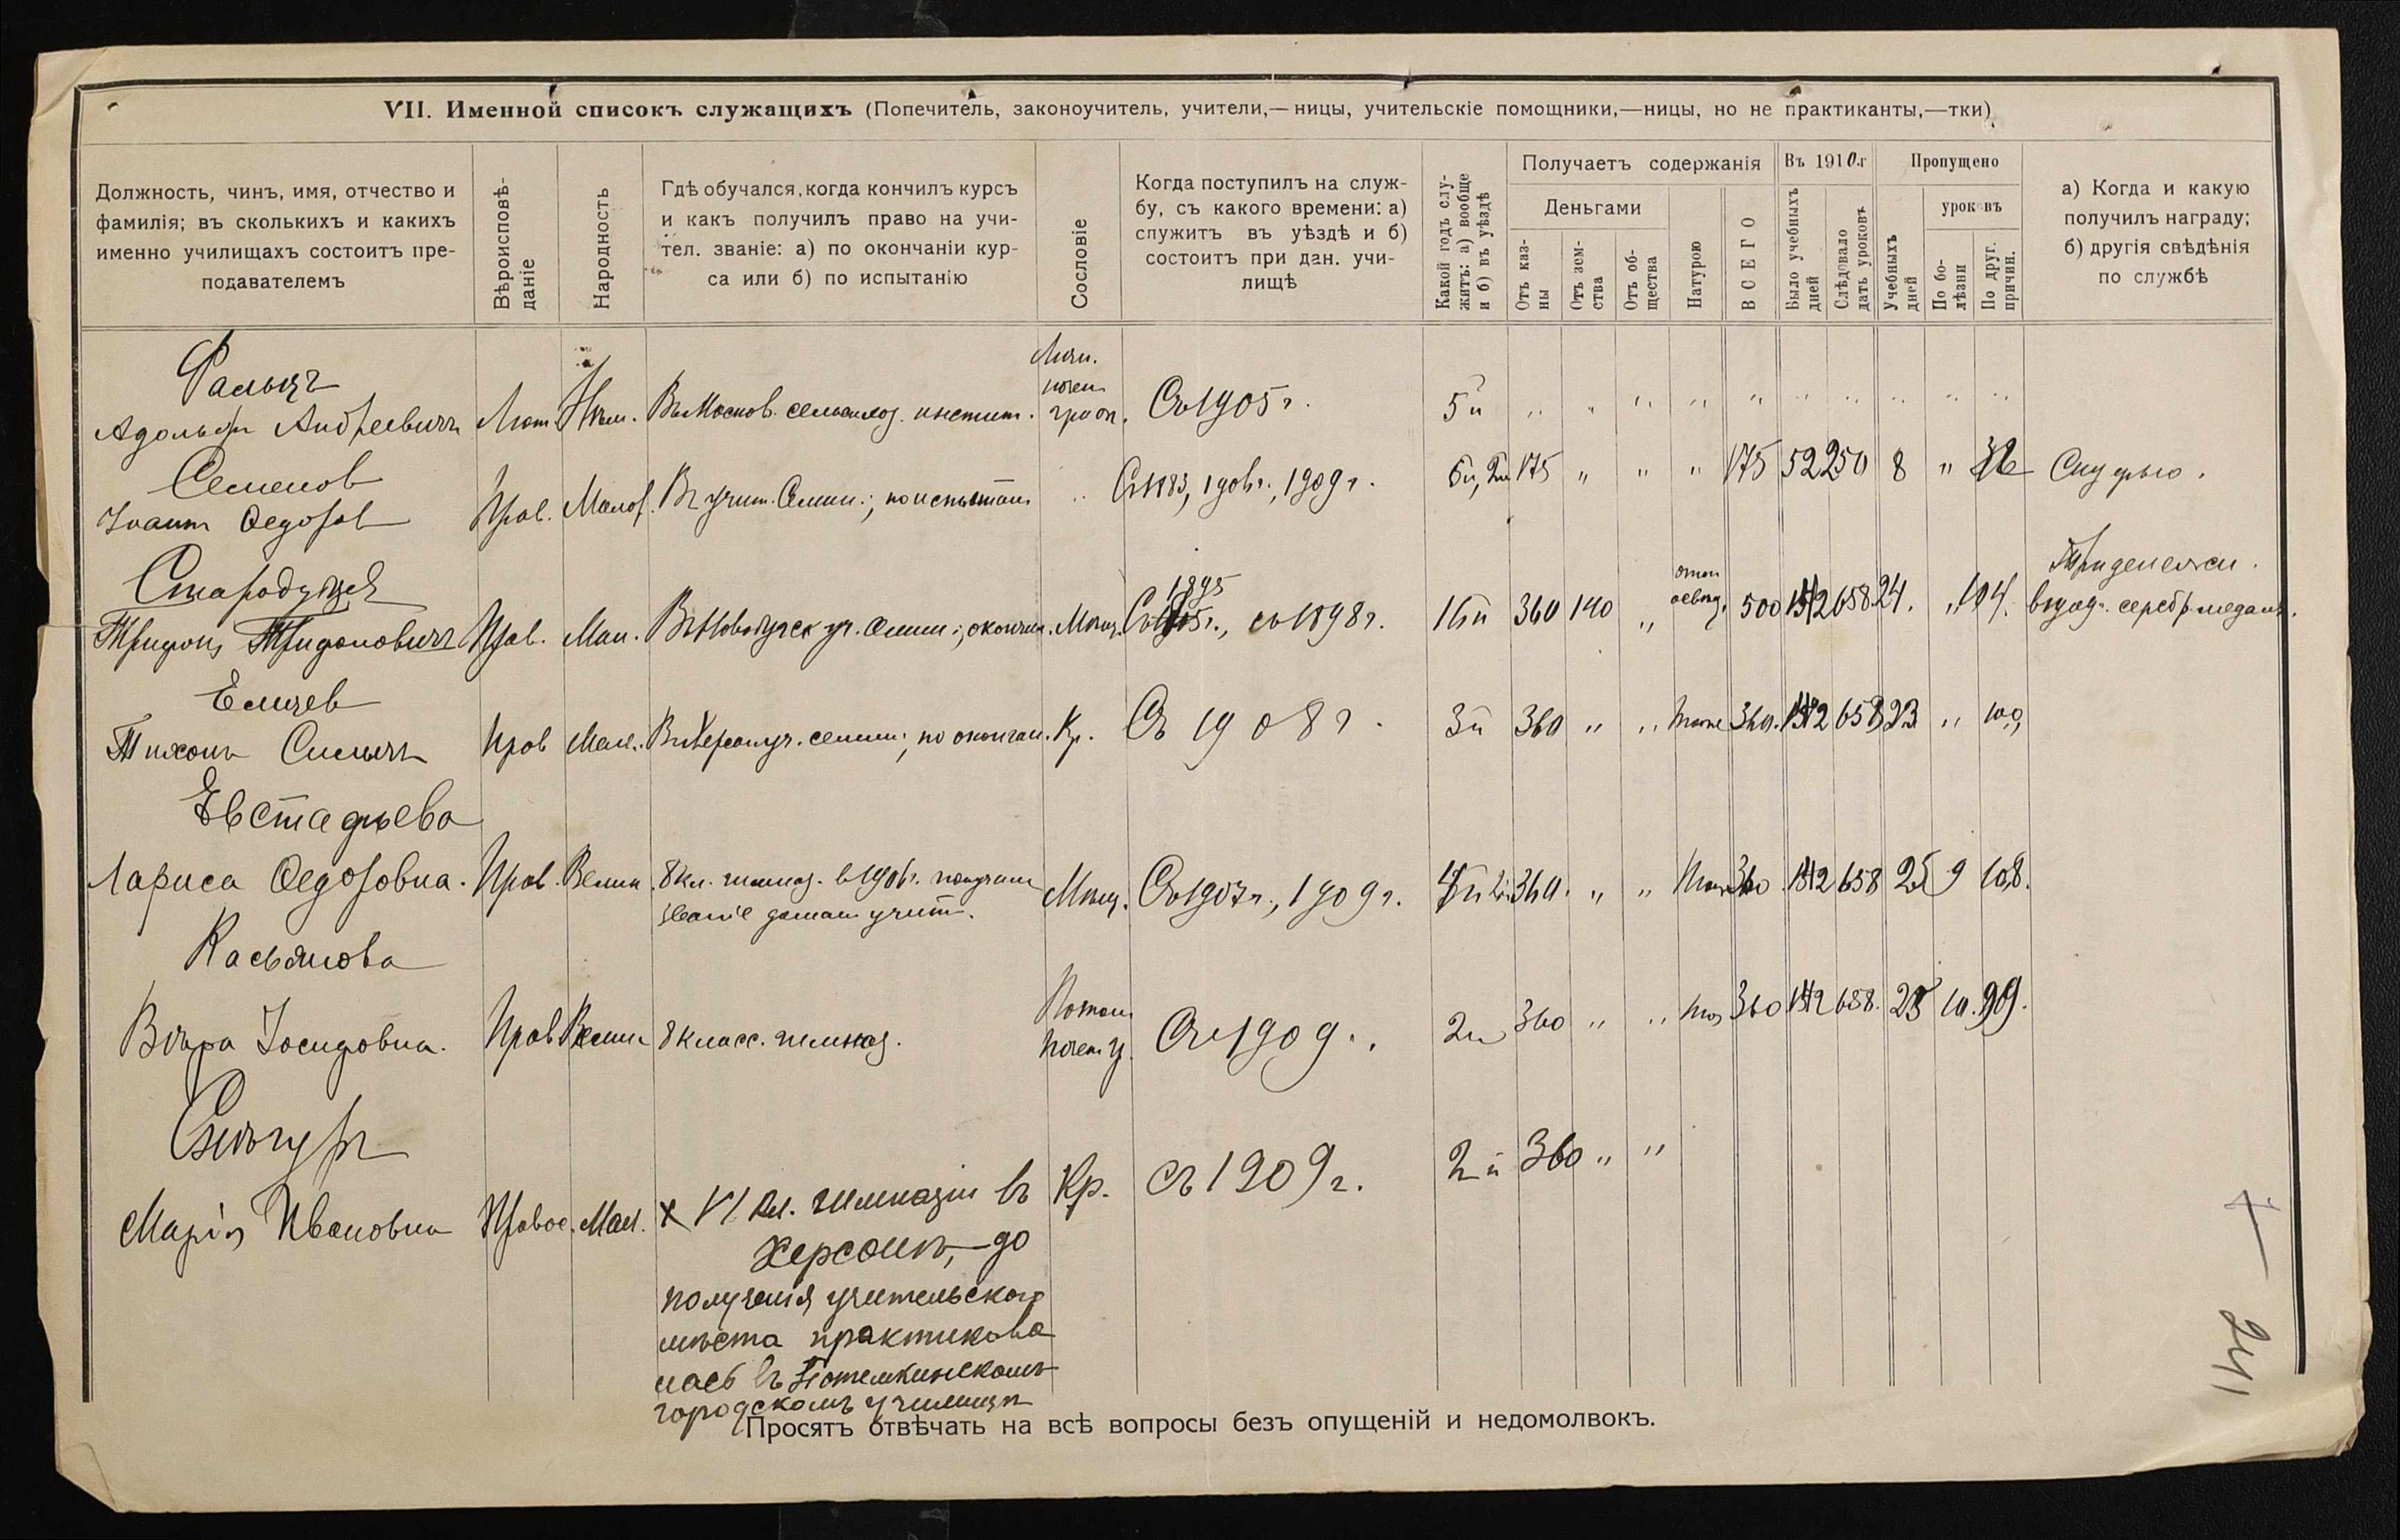 VII. Именной списокъ служащихъ (Попечитель, законоучитель, учители,—ницы, учительскіе помощники,—ницы, но не практиканты,—тки)
Должность, чинъ, имя, отчество и
фамилія; въ сколькихъ и какихъ
именно училищахъ состоитъ пре-
подавателемъ
Вѣроисповѣ-
даніе
Народность
Гдѣ обучался, когда кончилъ курсъ
и какъ получилъ право на учи-
тел. званіе: а) по окончаніи кур-
са или б) по испытанію
Сословіе
Когда поступилъ на служ-
бу, съ какого времени: а)
служитъ въ уѣздѣ и б)
состоитъ при дан. учи-
лищѣ
Какой годъ слу-
житъ: а) вообще
и б) въ уѣздѣ
Получаетъ содержанія
Деньгами
Отъ каз-
ны
Отъ зем-
ства
Отъ об-
щества
Натурою
ВСЕГО
Въ 1910 г
Было учебныхъ
дней
Слѣдовало
дать уроковъ
Пропущено
Учебныхъ
дней
уроковъ
По бо-
лѣзни
По друг.
причин.
а) Когда и какую
получилъ награду;
б) другія свѣдѣнія
по службѣ
Фальцъ
Адольфъ Андреевичъ Лют. Нѣм. Въ Москов. сельскохоз. инстит. Личн. почетн. гражд. Съ 1905 г. 5й " " " " " " " " " "
Семенов
Іоаннъ Ѳедоров Прав. Малор. Въ учит. Семин.; по испытан. " Съ 1883, 1909 г. 175 " " " 175 52 250 8 " Скуфью.
Стародубцев
Трифонъ Трифоновичъ Прав. Мал. уч. Семин.; окончил. Мѣщ. 1895 съ 1898 г. 16й 360 140 " 500 658 24. " 104. серебр. медаль.
Елисеев
Тихонъ Силычъ Прав Мал. Въ Херсон. уч. семин; по окончан. Кр. Съ 1908 г. 3й 360 " " тоже 360. 658 23 " 100,
Евстафьева
Лариса Ѳедоровна. Прав. Велик. 8 кл. гимназ. в 1906 г. получила
званіе домаш учит. Мѣщ. Съ 1907 г., 1909 г. 360. " " 360 658 25 9 108.
Касьянова
Вѣра Іосифовна. Прав Велик 8 класс. гимназ. Потом. Почет. г. Съ 1909 г. 2й 360 " " 360 658. 25 10. 99.
Снѣгуръ
Марія Ивановна Правос. Мал. х VI кл. гимназіи въ Кр. съ 1909 г. 2й 360 " "
Херсонѣ, до
полученія учительскаго
мѣста практикова
лась въ Потемкинскомъ
городскомъ училищѣ
Просятъ отвѣчать на всѣ вопросы безъ опущеній и недомолвокъ.
241